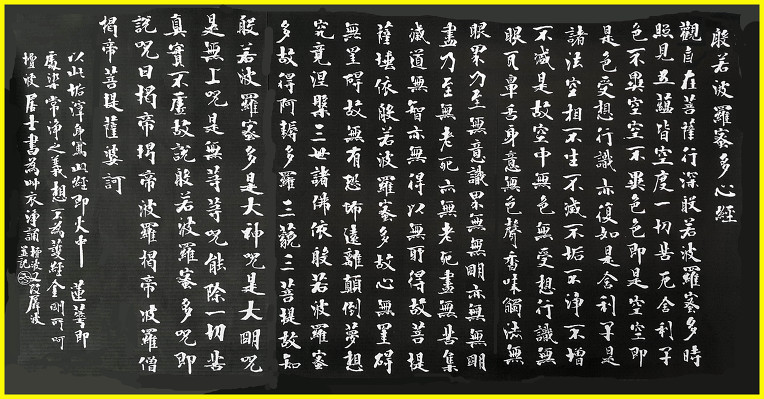 般若波羅蜜多心経
觀自在菩薩行深般若波羅蜜多時
照見五蘊皆空度一切苦厄舍利子
色不異空空不異色色即是空空即
是色受想行識亦復如是舍利子是
諸法空相不生不滅不垢不淨不增
不減是故空中無色無受想行識無
眼耳鼻舌身意無色聲香味觸法無
眼界乃至無意識界無無明亦無無明
盡乃至無老死亦無老死盡無苦集
滅道無智亦無得以無所得故菩提
薩埵依般若波羅蜜多故心無罣礙
無罣礙故無有恐怖遠離顛倒夢想
究竟涅槃三世諸佛依般若波羅蜜
多故得阿耨多羅三藐三菩提故知
般若波羅蜜多是大神呪是大明呪
是無上呪是無等等呪能除一切苦
真實不虛故說般若波羅蜜多呪即
說呪曰揭帝揭帝波羅揭帝波羅僧
揭帝菩提薩婆訶
以此垢滓身寫此経即火中蓮華即
處染常淨之義想不為護経金剛所呵
檀波居士書為艸衣淨誦